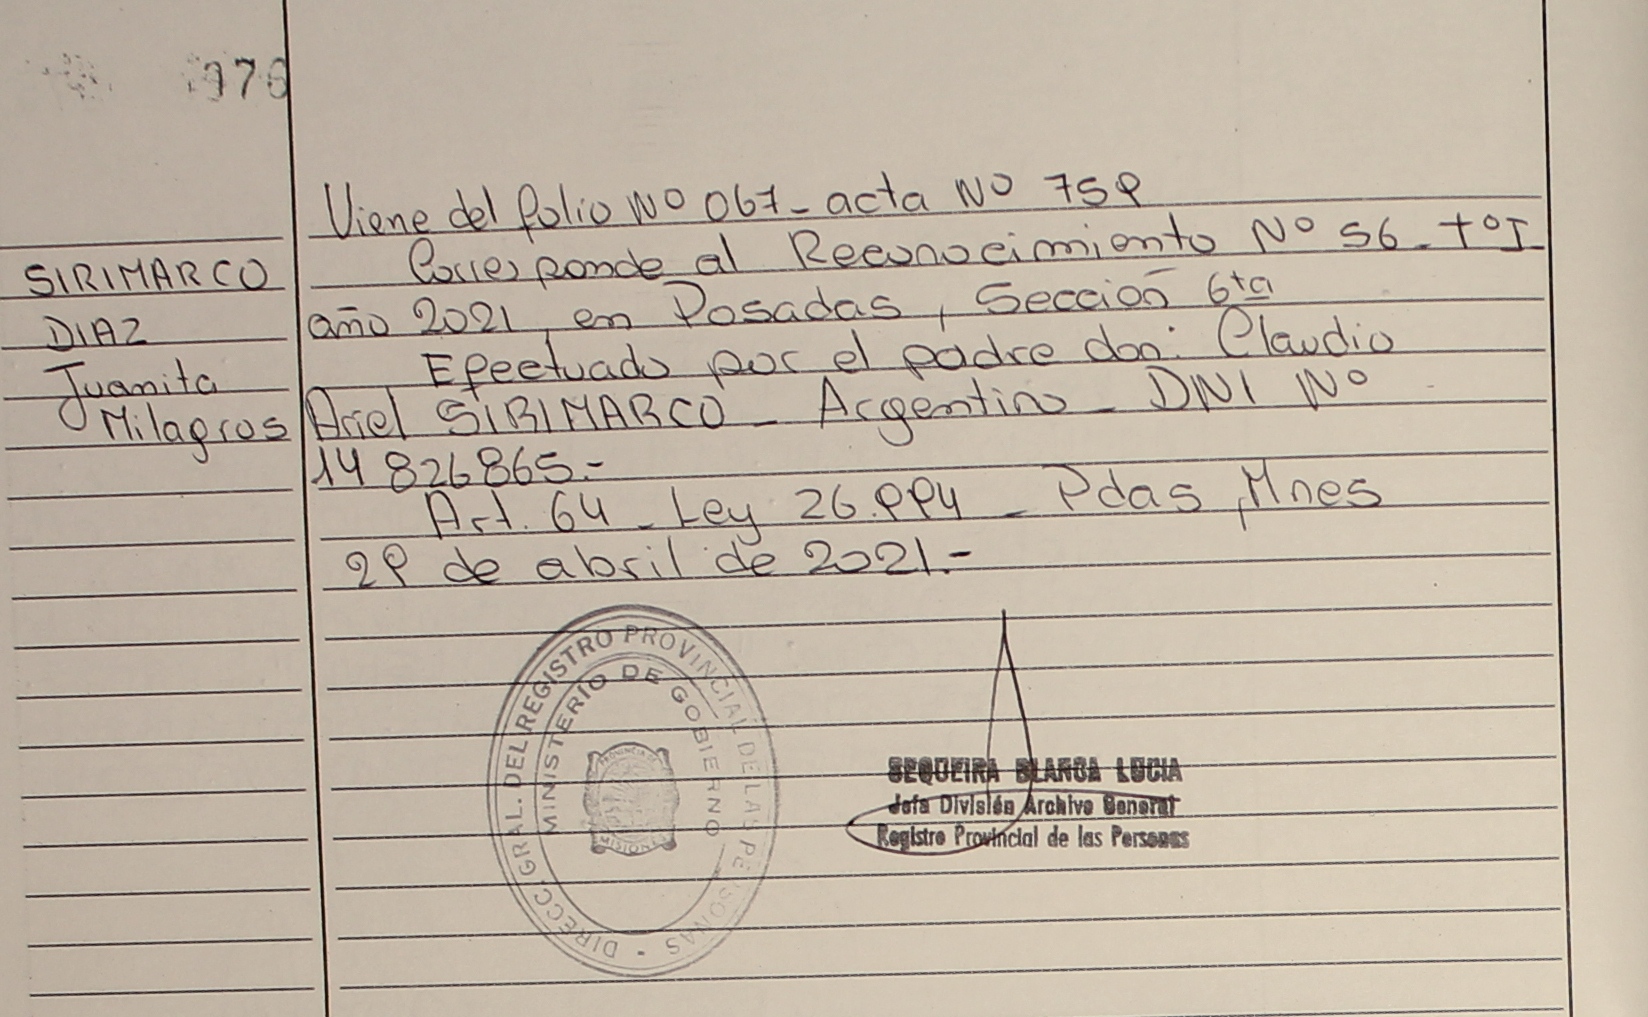 Viene del folio Nº 067 - acta Nº 759
Corresponde al Reconocimiento Nº 56 - tº I
SIRIMARCO
año 2021, en Posadas, Sección 6ta
DIAZ
Efectuado por el padre don: Claudio
Juanita
Ariel SIRIMARCO - Argentino - DNI Nº
Milagros
14 826865.-
Art. 64 - Ley 26.994 - Pdas, Mnes
29 de abril de 2021.-
DIRECC. GRAL. DEL REGISTRO PROVINCIAL DE LAS PERSONAS
MINISTERIO DE GOBIERNO
PROVINCIA DE
MISIONES
SEQUEIRA BLANCA LUCIA
Jefa División Archivo General
Registro Provincial de las Personas